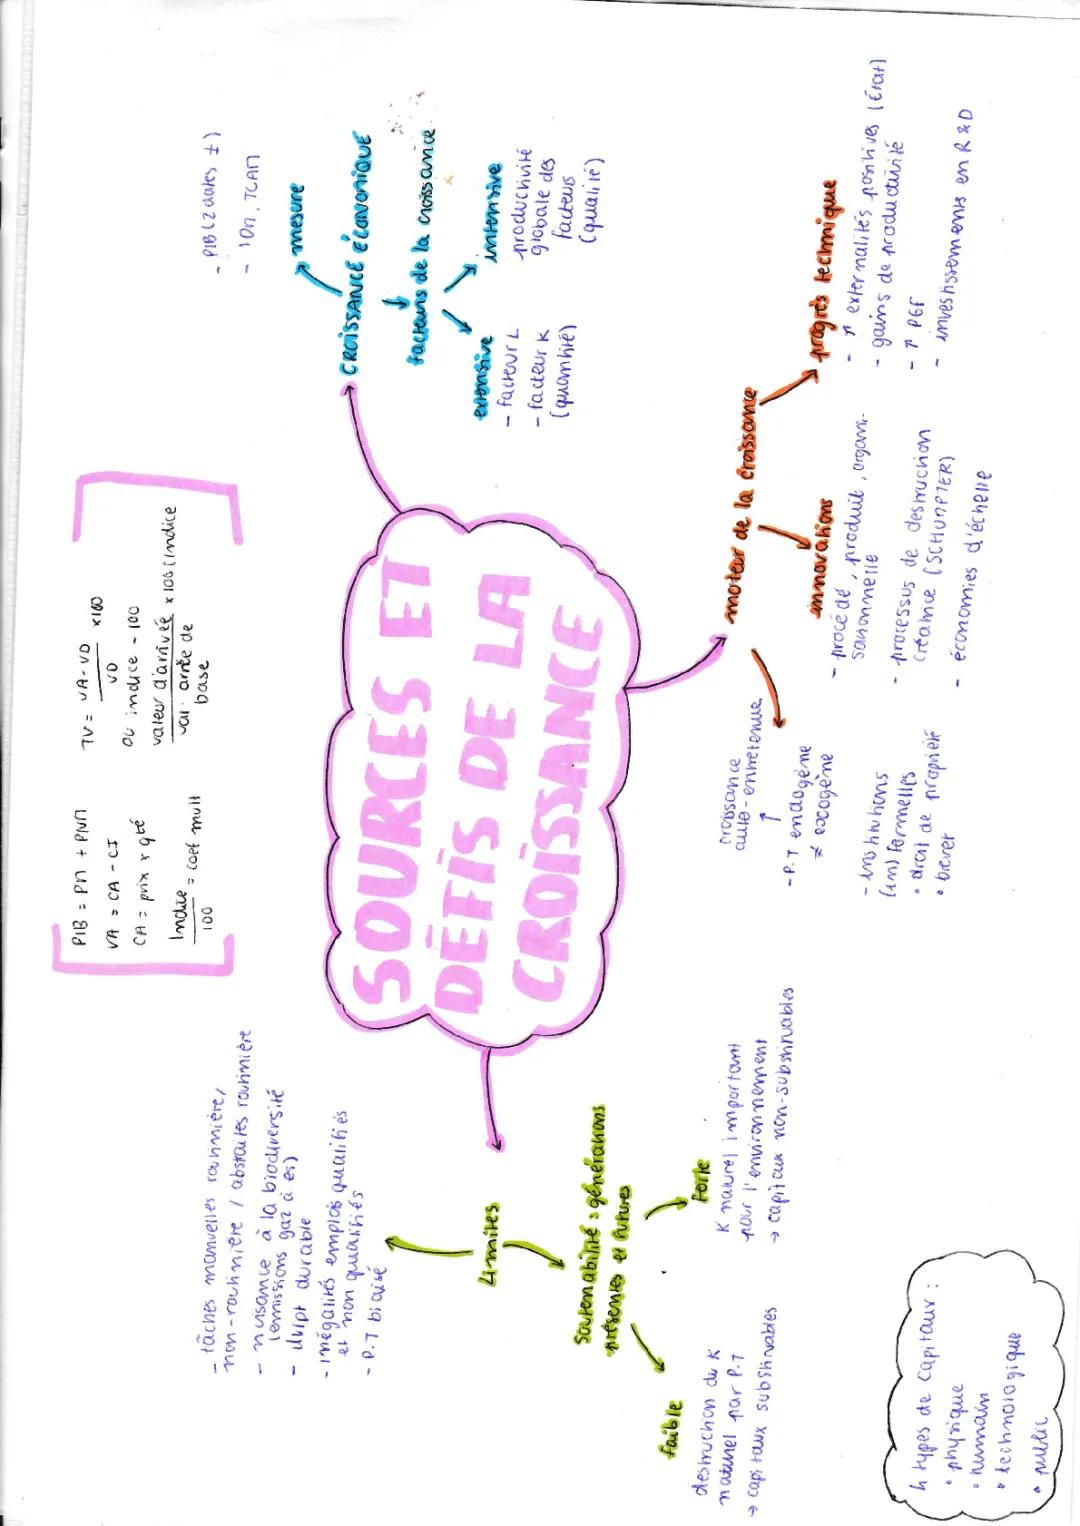 PIB = PM + PNM
VA = CA - CI
CA = prix x qté
Indice = coef mult
100
TV = VA - VD x100
VD
ou indice - 100
valeur d'arrivée x 100 (Indice
val. arrée de
base
SOURCES ET
DÉFIS DE LA
CROISSANCE
CROISSANCE ÉCONOMIQUE
mesure
- PIB (2 dates ±)
- IDH, TCAM
facteurs de la croissance
extensive
- facteur L
- facteur K
(quantité)
intensive
productivité
globale des
facteurs
(qualité)
moteur de la croissance
croissance
auto-entretenue
↑
- P.T endogène
≠ exogène
- institutions
(in) formelles
• droit de propriété
• brevet
innovations
- procédé, produit, organi-
sationnelle
- processus de destruction
créatrice (SCHUMPTER)
- économies d'échelle
progrès technique
- ↗ externalités positives (État)
- gains de productivité
- ↗ PGF
- investissements en R & D
Limites
- tâches manuelles routinière,
non-routinière / abstraites routinière
- nuisance à la biodiversité
(émissions gaz à es)
- dvlpt durable
- inégalités emplois qualifiés
et non qualifiés
- P.T biaisé
Soutenabilité : générations
présentes et futures
faible
destruction du K
naturel par P.T
→ capitaux substituables
Forte
K naturel important
pour l'environnement
→ capitaux non-substituables
4 types de capitaux :
• physique
• humain
• technologique
• public